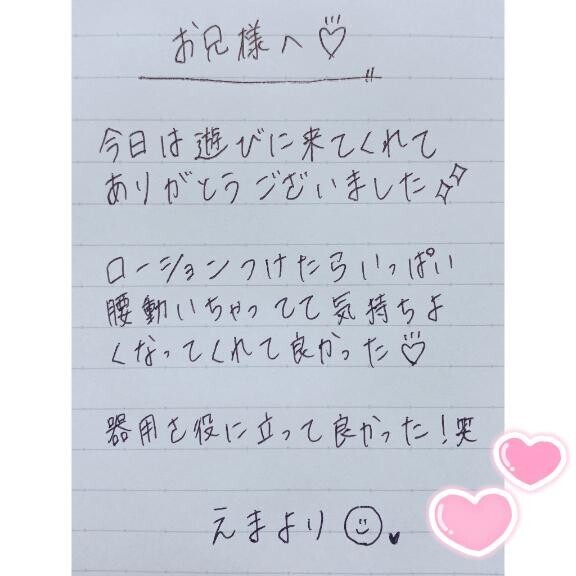 お兄様へ♡
今日は遊びに来てくれて
ありがとうございました
ローションつけたらいっぱい
腰動いちゃってて気持ちよ
くなってくれて良かった♡
器用さ役に立って良かった!笑
えまより